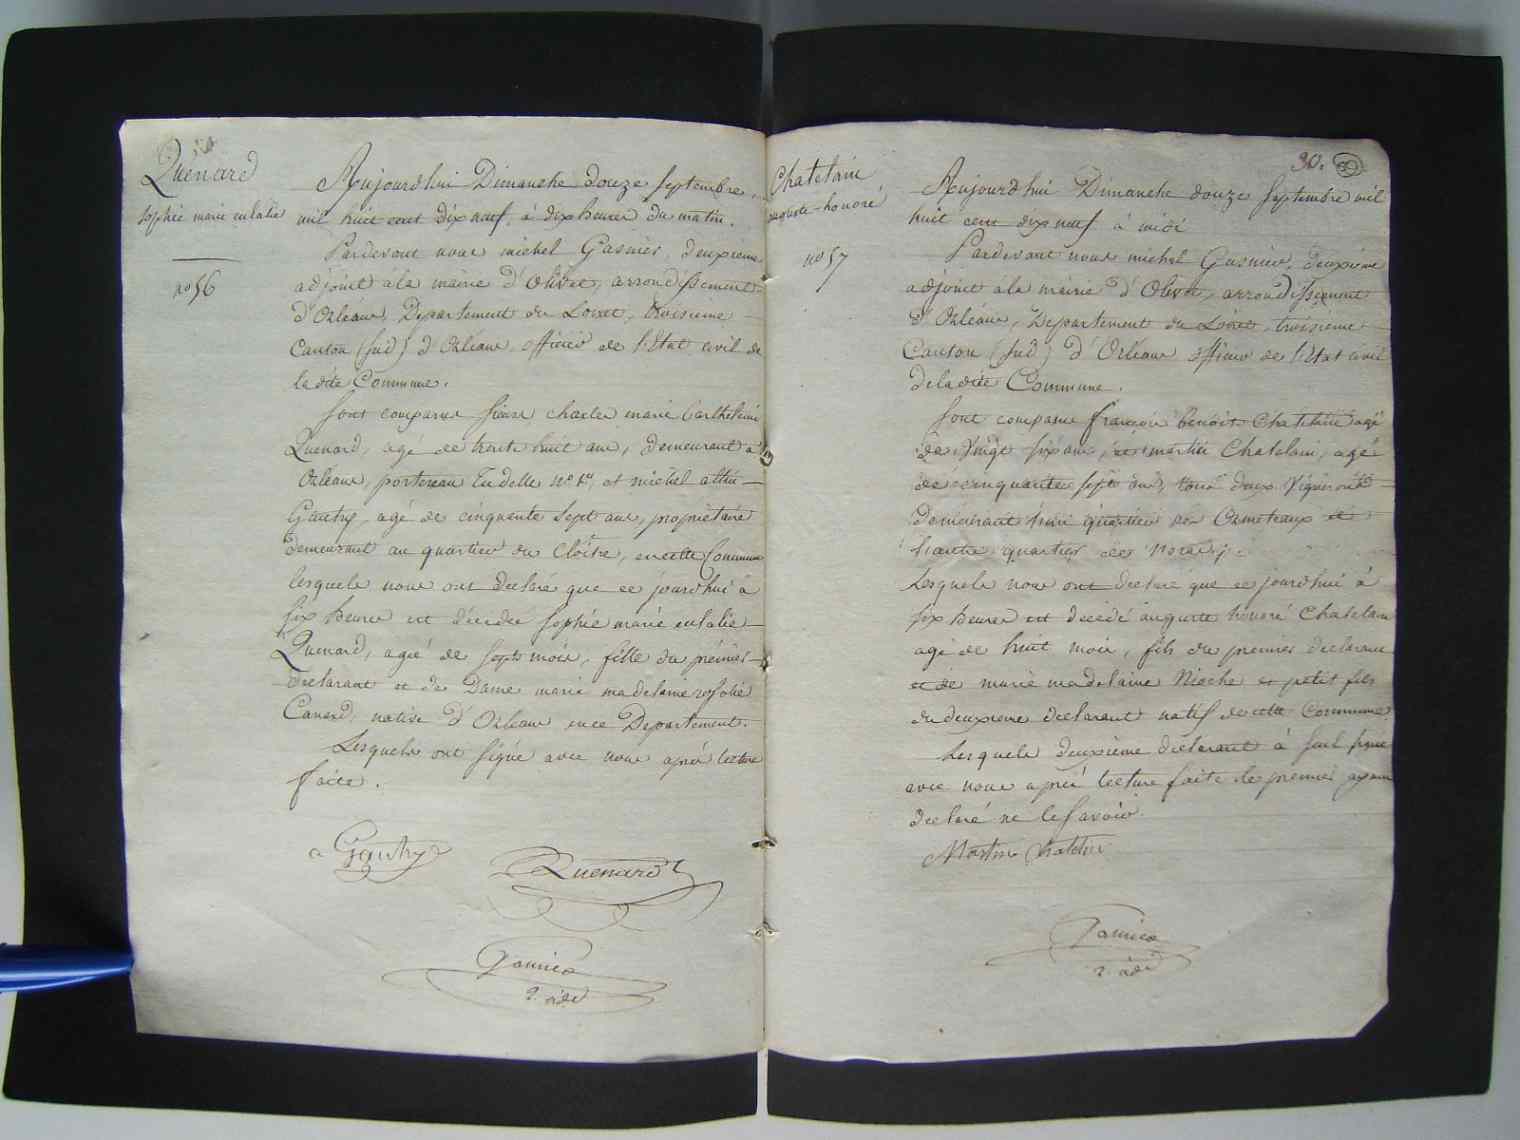 Quénard
Sophie marie eulalie
no 56
Aujourd'hui Dimanche douze Septembre
mil huit cent dix neuf, à dix heures du matin.
Pardevant nous michel Gasnier, deuxième
adjoint à la mairie d'Olivet, arrondissement
d'Orléans, Departement du Loiret, troisieme
Canton (sud) d'Orléans, officier de l'Etat civil de
ladite Commune.
Sont comparus Sieurs charles marie barthelemi
Quenard, agé de trente huit ans, demeurant à
Orléans, portereau Tudelle no 1er, et michel
Gauthy, agé de cinquante Sept ans, propriétaire
demeurant au quartier du Cloître, en cette Commune
lesquels nous ont declaré que ce jourd'hui à
Six heures est décédée Sophie marie eulalie
Quenard, agée de Sept mois, fille du prémier
declarant et de Dame marie madelaine rosalie
Canard, native d'Orléans en ce Departement.
Lesquels ont signé avec nous après lecture
faite.
a Gauthy
Quenard
Gasnier
2. adj
30. 30
Chatelain
auguste-honoré
no 57
Aujourd'hui Dimanche douze Septembre mil
huit cent dix neuf à midi
Pardevant nous michel Gasnier, deuxième
adjoint à la mairie d'Olivet, arrondissement
d'Orléans, Departement du Loiret, troisieme
Canton (sud) d'Orléans officier de l'Etat civil
de ladite Commune.
Sont comparus françois benoît Chatelain agé
de Vingt six ans, et martin Chatelain, agé
de cinquante sept ans, tous deux Vignerons
demeurant l'un quartier des Ormeteaux et
l'autre quartier des
Lesquels nous ont declaré que ce jourd'hui à
Six heures est decedé auguste honoré Chatelain
agé de huit mois, fils du premier declarant
et de marie madelaine Nioche et petit fils
du deuxieme declarant natif de cette Commune
Lesquels deuxième declarant à seul signé
avec nous après lecture faite le premier ayant
declaré ne le savoir.
Martin Chatelin
Gasnier
2. adj